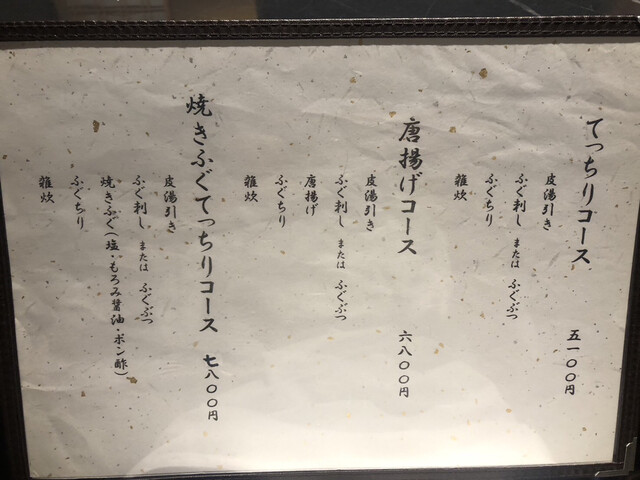 てっちりコース 五一〇〇円
皮湯引き
ふぐ刺し または ふぐぶつ
ふぐちり
雑炊
唐揚げコース 六八〇〇円
皮湯引き
ふぐ刺し または ふぐぶつ
唐揚げ
ふぐちり
雑炊
焼きふぐてっちりコース 七八〇〇円
皮湯引き
ふぐ刺し または ふぐぶつ
焼きふぐ(塩・もろみ醤油・ポン酢)
ふぐちり
雑炊